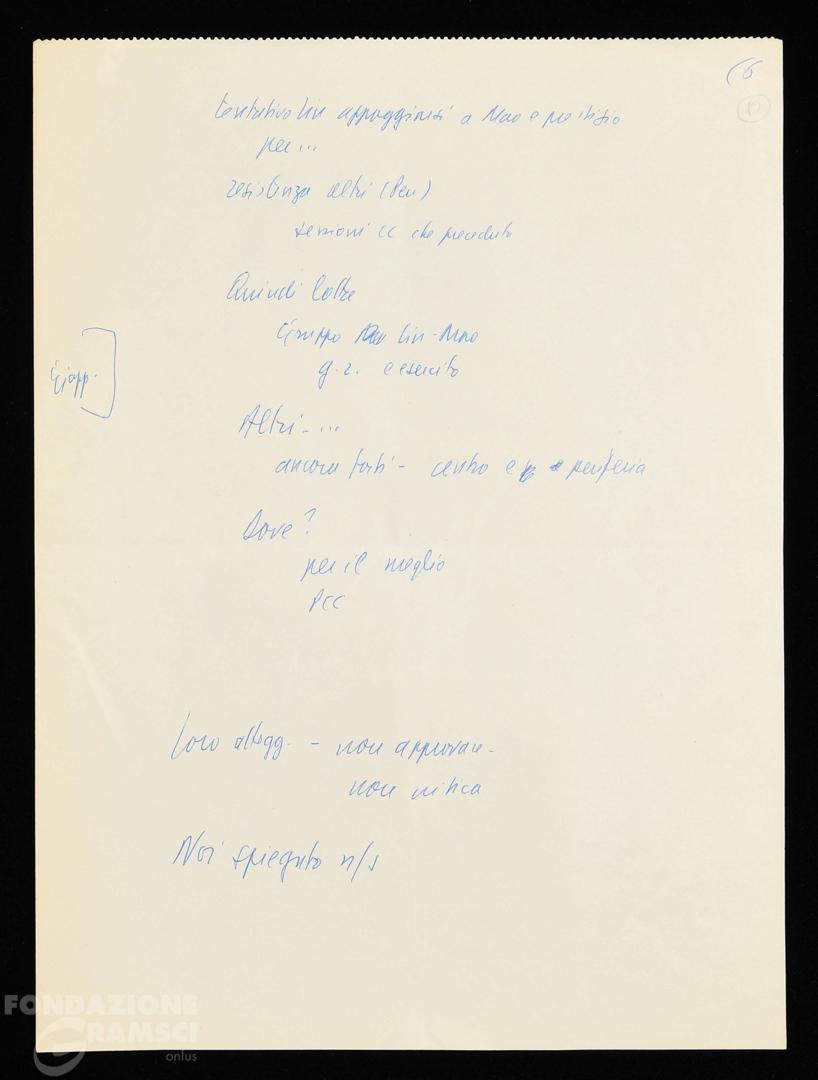 (6
tentativo Lin appoggiarsi a Mao e prestigio
per...
resistenza altri (Pen)
sessioni CC che preceduto
Quindi lotta
Gruppo Lin-Mao
g.r. e esercito
Giapp.
Altri - ...
ancora forti - centro e periferia
Dove?
per il meglio
PCC
Loro attegg. - non approvare -
non critica
Noi spiegato n/s
FONDAZIONE
GRAMSCI
onlus